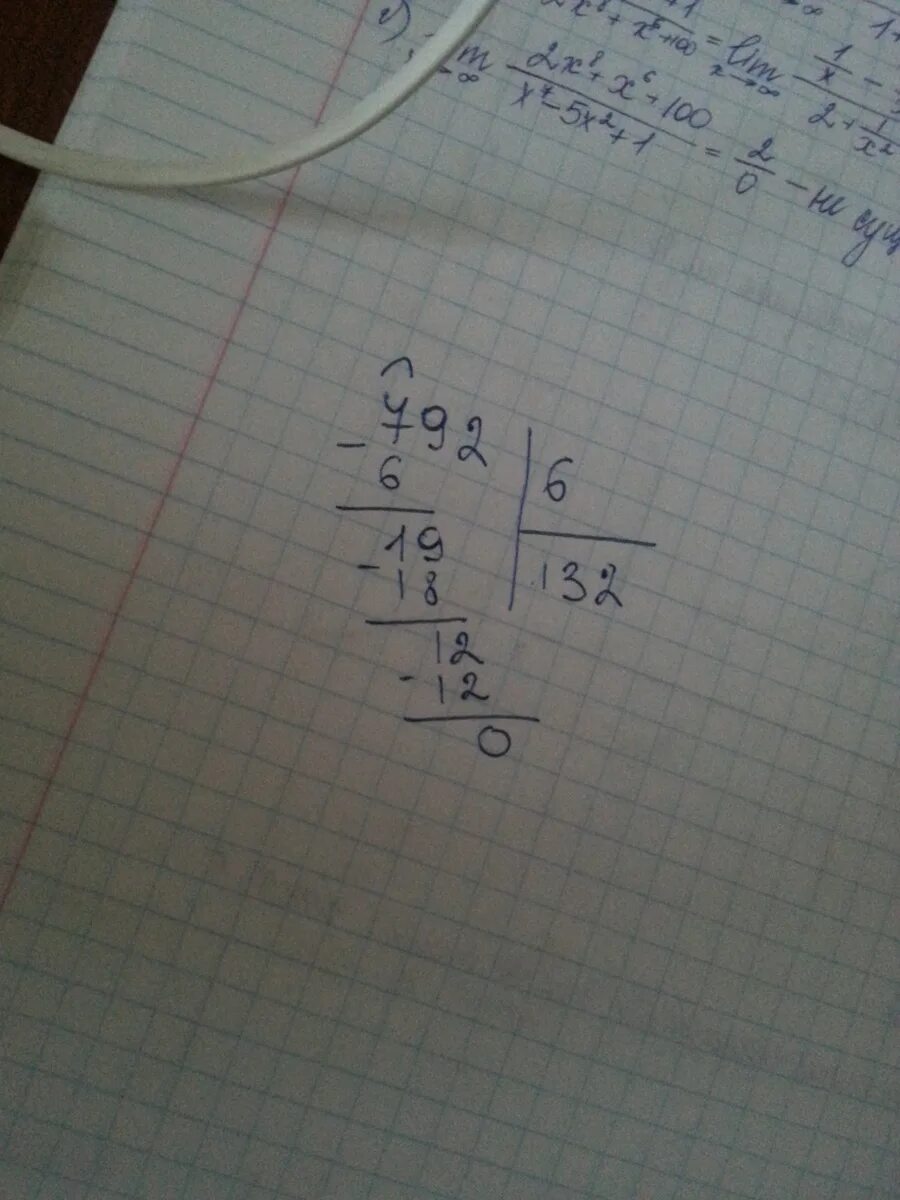 2x⁸ + x⁶ + 100 = lim x→∞ 1/x - 
2 + 1/x²
г) lim →∞ (2x⁸ + x⁶ + 100)/(x⁷ - 5x² + 1) = 2/0 - не сущ
- 792 | 6
6
- 19 | 132
18
12
- 12
0